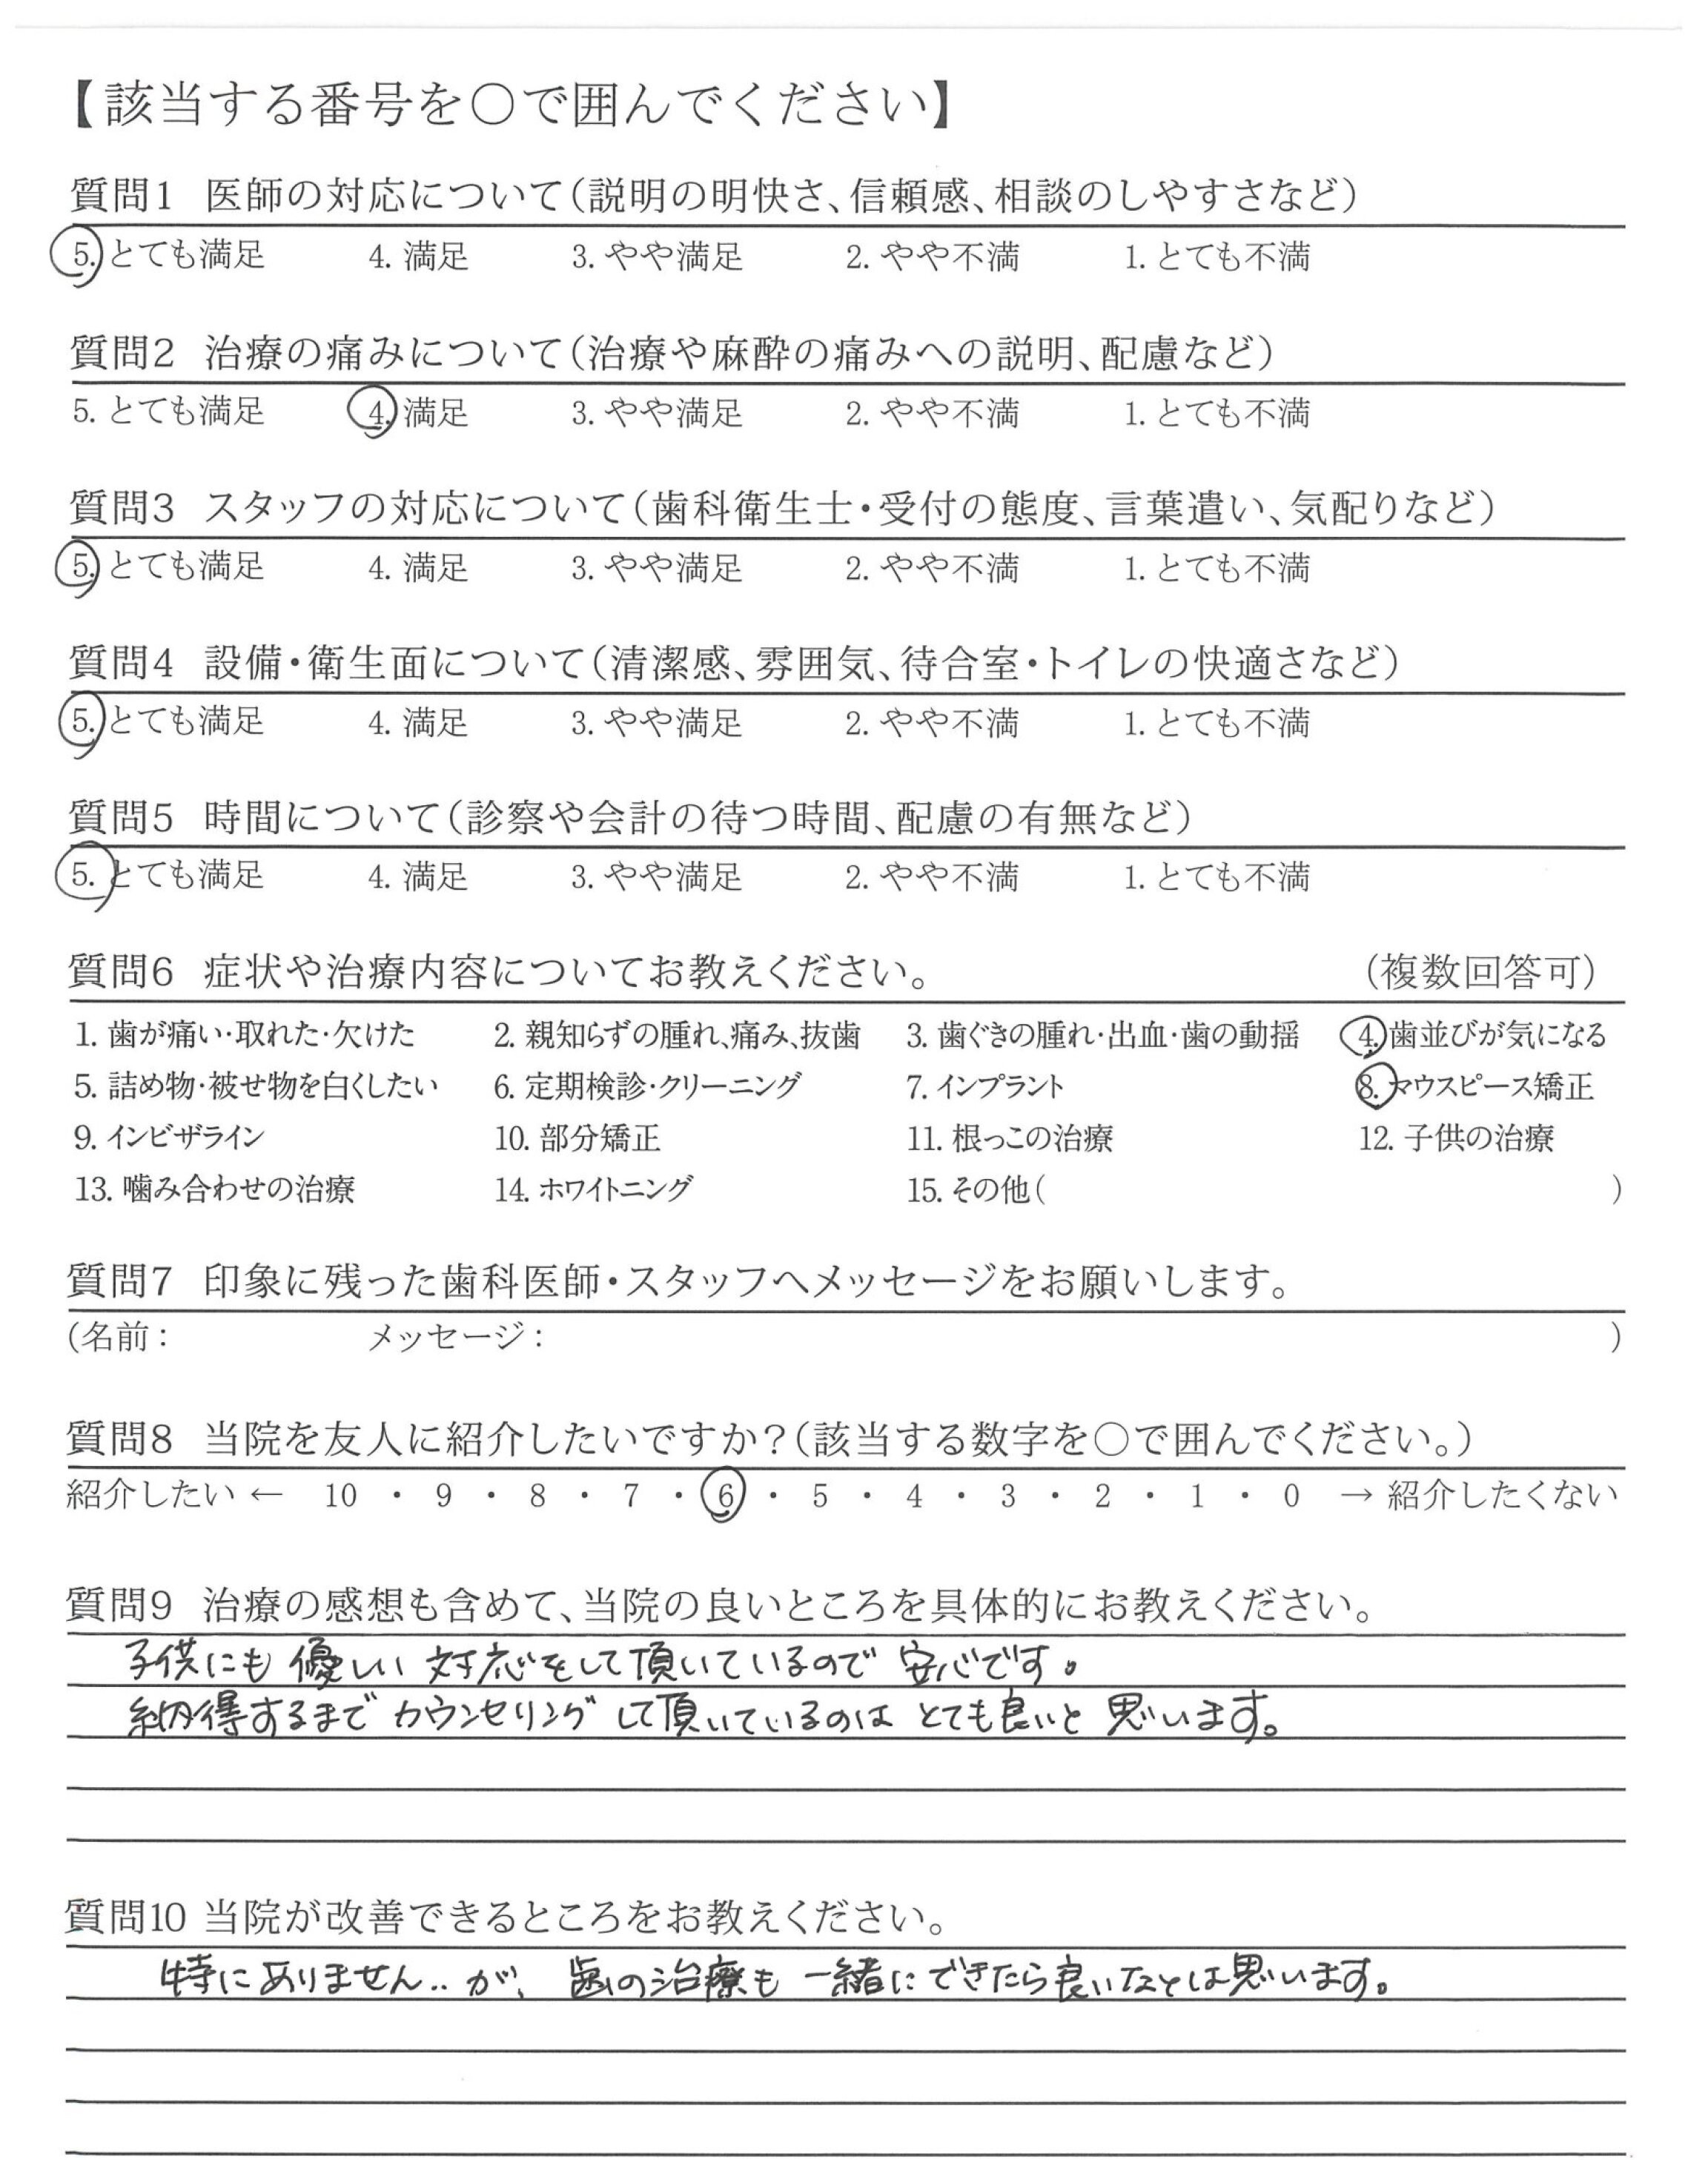 【該当する番号を〇で囲んでください】
質問1 医師の対応について(説明の明快さ、信頼感、相談のしやすさなど)
5. とても満足 4. 満足 3. やや満足 2. やや不満 1. とても不満
質問2 治療の痛みについて(治療や麻酔の痛みへの説明、配慮など)
5. とても満足 4. 満足 3. やや満足 2. やや不満 1. とても不満
質問3 スタッフの対応について(歯科衛生士・受付の態度、言葉遣い、気配りなど)
5. とても満足 4. 満足 3. やや満足 2. やや不満 1. とても不満
質問4 設備・衛生面について(清潔感、雰囲気、待合室・トイレの快適さなど)
5. とても満足 4. 満足 3. やや満足 2. やや不満 1. とても不満
質問5 時間について(診察や会計の待つ時間、配慮の有無など)
5. とても満足 4. 満足 3. やや満足 2. やや不満 1. とても不満
質問6 症状や治療内容についてお教えください。 (複数回答可)
1. 歯が痛い・取れた・欠けた 2. 親知らずの腫れ、痛み、抜歯 3. 歯ぐきの腫れ・出血・歯の動揺 4. 歯並びが気になる
5. 詰め物・被せ物を白くしたい 6. 定期検診・クリーニング 7. インプラント 8. マウスピース矯正
9. インビザライン 10. 部分矯正 11. 根っこの治療 12. 子供の治療
13. 噛み合わせの治療 14. ホワイトニング 15. その他( )
質問7 印象に残った歯科医師・スタッフへメッセージをお願いします。
(名前: メッセージ: )
質問8 当院を友人に紹介したいですか?(該当する数字を〇で囲んでください。)
紹介したい ← 10 ・ 9 ・ 8 ・ 7 ・ 6 ・ 5 ・ 4 ・ 3 ・ 2 ・ 1 ・ 0 → 紹介したくない
質問9 治療の感想も含めて、当院の良いところを具体的にお教えください。
子供にも優しい対応をして頂いているので安心です。
納得するまでカウンセリングして頂いているのはとても良いと思います。
質問10 当院が改善できるところをお教えください。
特にありません..が、歯の治療も一緒にできたら良いなとは思います。